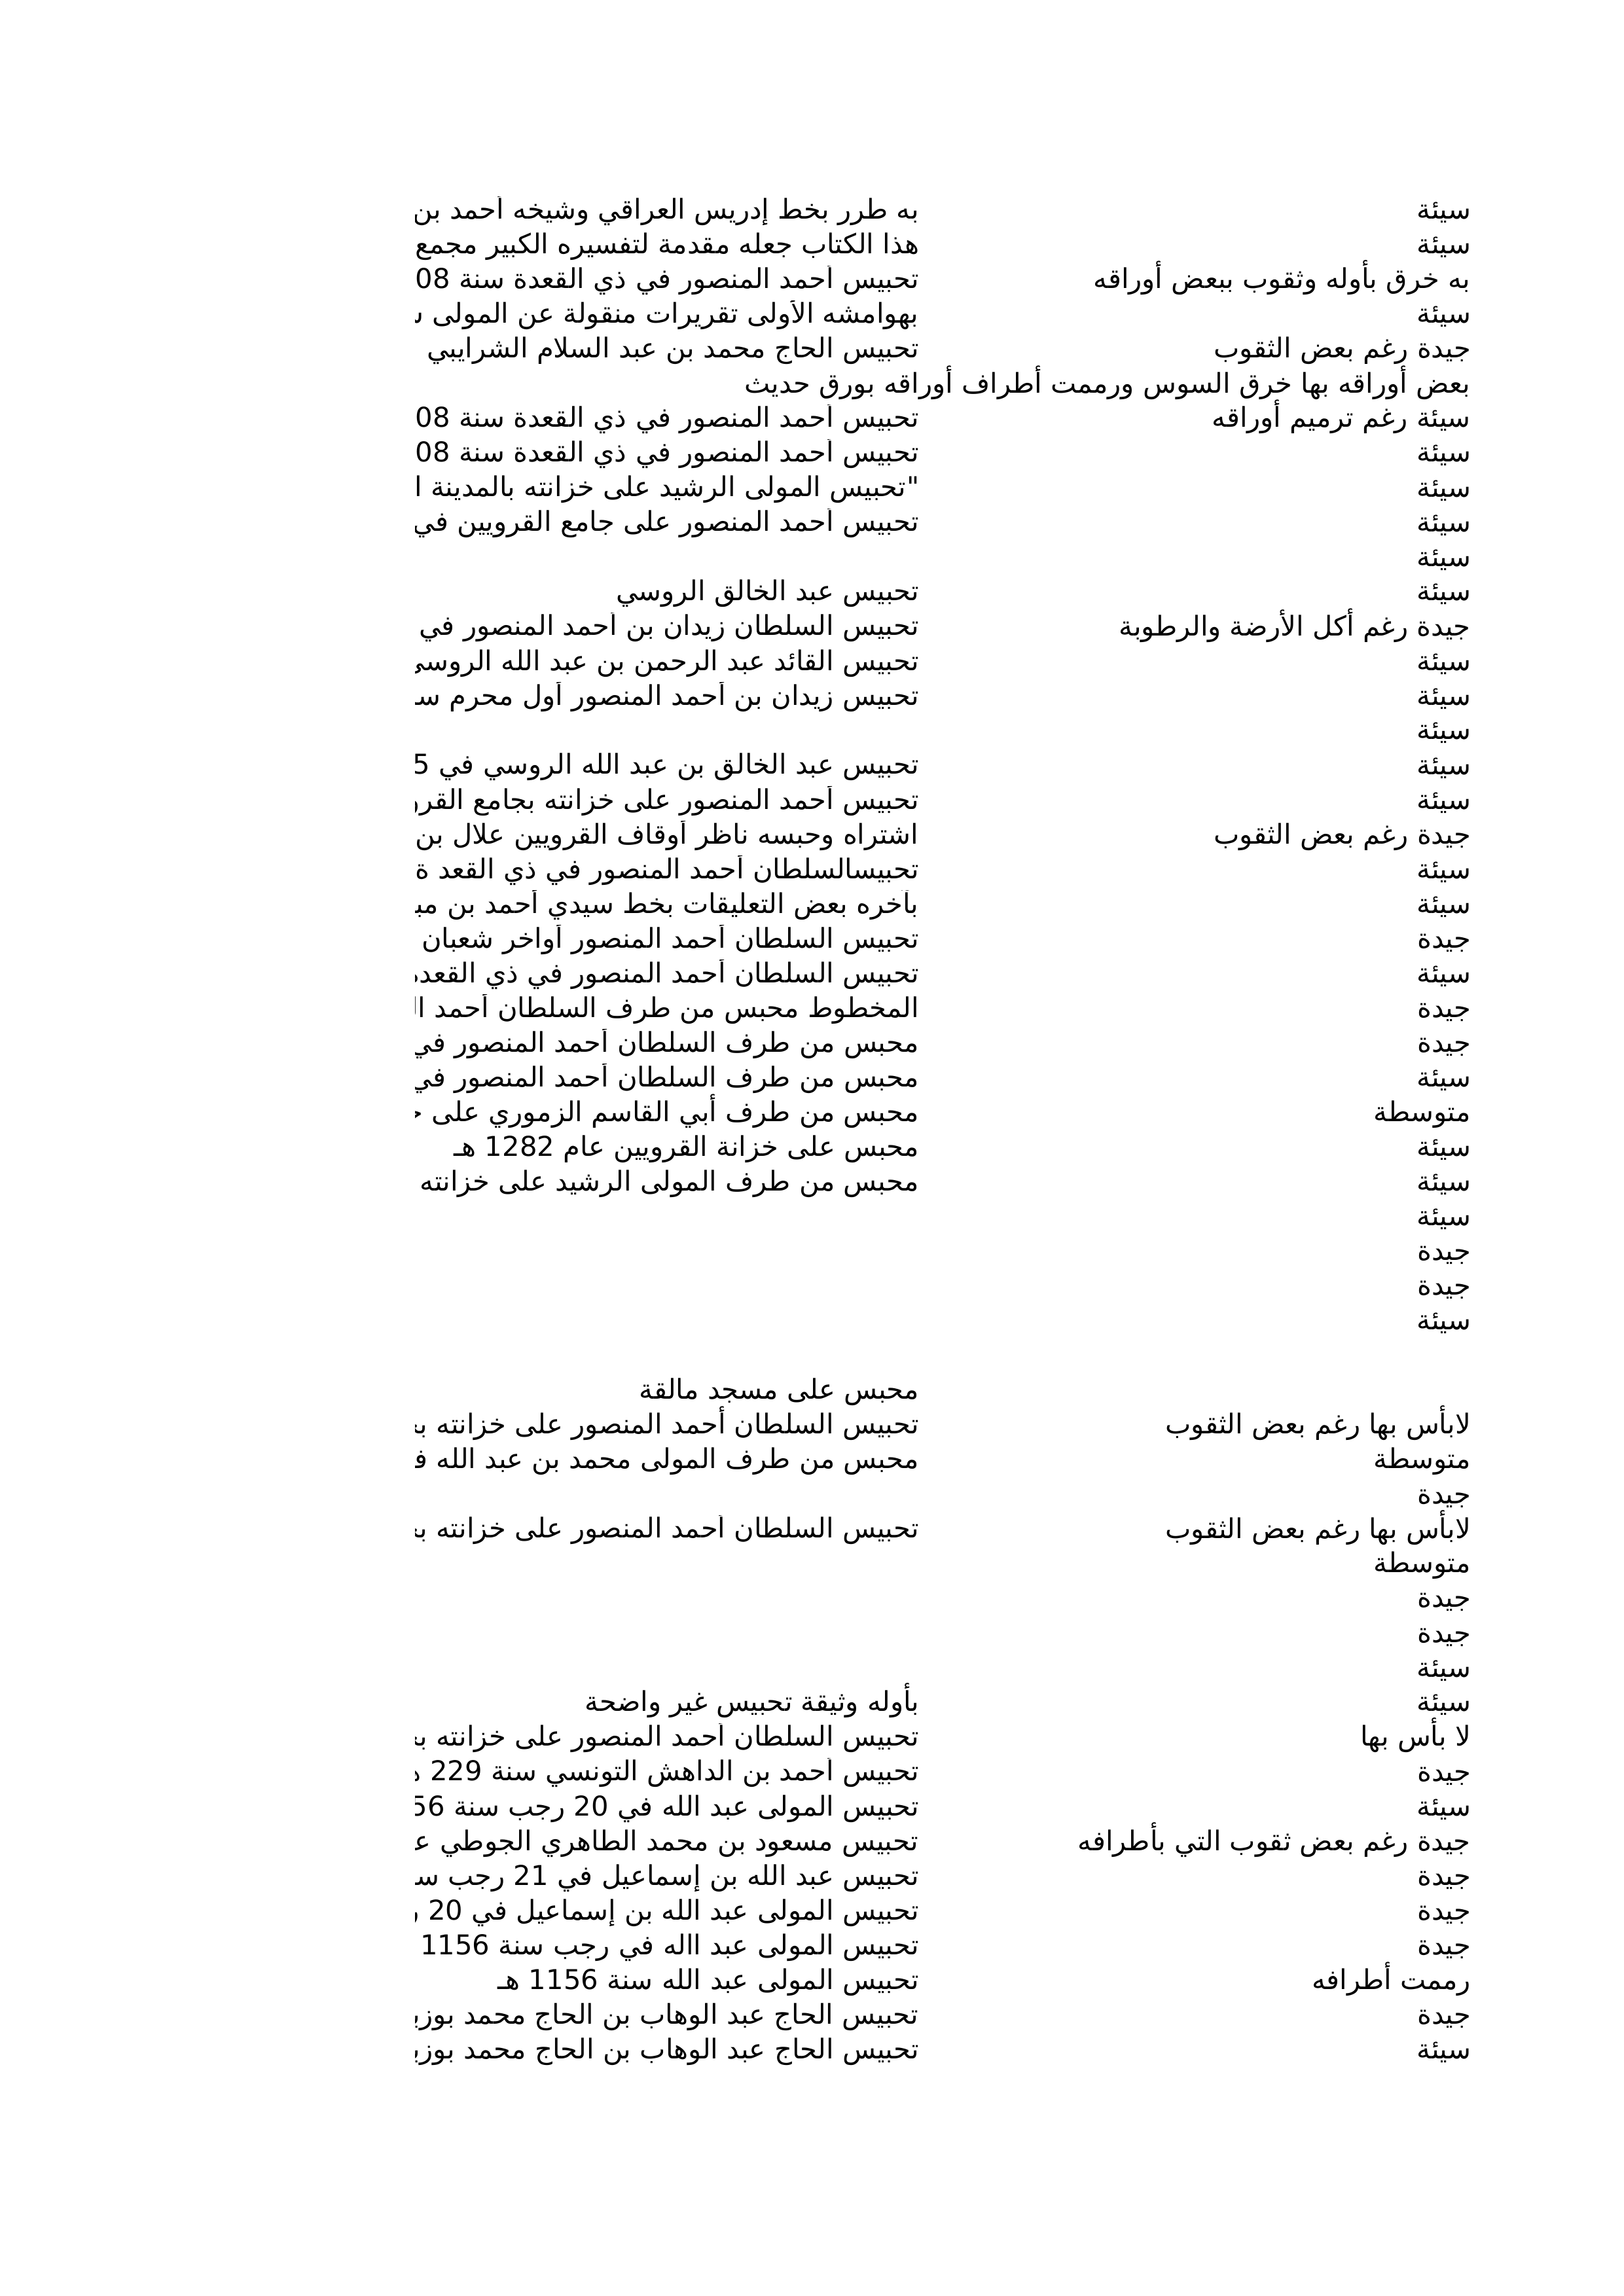 سيئة به طرر بخط إدريس العراقي وشيخه أحمد بن
سيئة هذا الكتاب جعله مقدمة لتفسيره الكبير مجمع
به خرق بأوله وثقوب ببعض أوراقه تحبيس أحمد المنصور في ذي القعدة سنة 08
سيئة بهوامشه الأولى تقريرات منقولة عن المولى
جيدة رغم بعض الثقوب تحبيس الحاج محمد بن عبد السلام الشرايبي
بعض أوراقه بها خرق السوس ورممت أطراف أوراقه بورق حديث
سيئة رغم ترميم أوراقه تحبيس أحمد المنصور في ذي القعدة سنة 08
سيئة تحبيس أحمد المنصور في ذي القعدة سنة 08
سيئة "تحبيس المولى الرشيد على خزانته بالمدينة ا
سيئة تحبيس أحمد المنصور على جامع القرويين في
سيئة
سيئة تحبيس عبد الخالق الروسي
جيدة رغم أكل الأرضة والرطوبة تحبيس السلطان زيدان بن أحمد المنصور في
سيئة تحبيس القائد عبد الرحمن بن عبد الله الروسي
سيئة تحبيس زيدان بن أحمد المنصور أول محرم س
سيئة
سيئة تحبيس عبد الخالق بن عبد الله الروسي في 5
سيئة تحبيس أحمد المنصور على خزانته بجامع القرو
جيدة رغم بعض الثقوب اشتراه وحبسه ناظر أوقاف القرويين علال بن
سيئة تحبيسالسلطان أحمد المنصور في ذي القعد ة
سيئة بآخره بعض التعليقات بخط سيدي أحمد بن مب
جيدة تحبيس السلطان أحمد المنصور أواخر شعبان
سيئة تحبيس السلطان أحمد المنصور في ذي القعدة
جيدة المخطوط محبس من طرف السلطان أحمد ال
جيدة محبس من طرف السلطان أحمد المنصور في
سيئة محبس من طرف السلطان أحمد المنصور في
متوسطة محبس من طرف أبي القاسم الزموري على
سيئة محبس على خزانة القرويين عام 1282 هـ
سيئة محبس من طرف المولى الرشيد على خزانته
سيئة
جيدة
جيدة
سيئة
محبس على مسجد مالقة
لابأس بها رغم بعض الثقوب تحبيس السلطان أحمد المنصور على خزانته ب
متوسطة محبس من طرف المولى محمد بن عبد الله ف
جيدة
لابأس بها رغم بعض الثقوب تحبيس السلطان أحمد المنصور على خزانته ب
متوسطة
جيدة
جيدة
سيئة
سيئة بأوله وثيقة تحبيس غير واضحة
لا بأس بها تحبيس السلطان أحمد المنصور على خزانته ب
جيدة تحبيس أحمد بن الداهش التونسي سنة 229 ه
سيئة تحبيس المولى عبد الله في 20 رجب سنة 56
جيدة رغم بعض ثقوب التي بأطرافه تحبيس مسعود بن محمد الطاهري الجوطي ع
جيدة تحبيس عبد الله بن إسماعيل في 21 رجب س
جيدة تحبيس المولى عبد الله بن إسماعيل في 20 ر
جيدة تحبيس المولى عبد االه في رجب سنة 1156
رممت أطرافه تحبيس المولى عبد الله سنة 1156 هـ
جيدة تحبيس الحاج عبد الوهاب بن الحاج محمد بوزي
سيئة تحبيس الحاج عبد الوهاب بن الحاج محمد بوزي